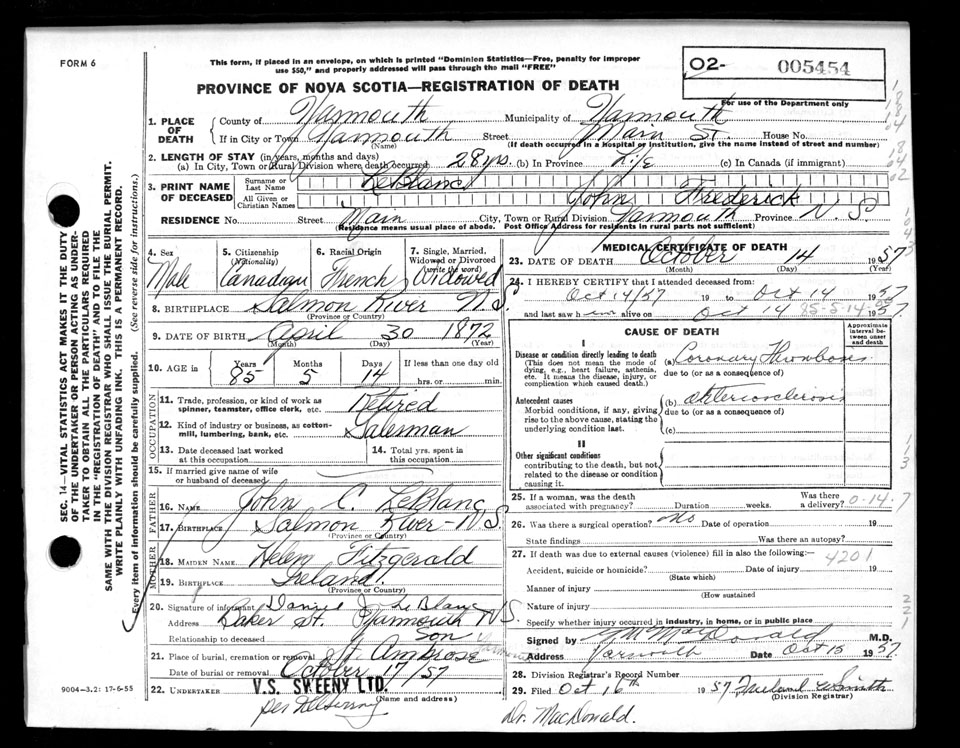 FORM 6
This form, if placed in an envelope, on which is printed "Dominion Statistics—Free, penalty for improper
use $50," and properly addressed will pass through the mail "FREE"
O2- 005454
For use of the Department only
PROVINCE OF NOVA SCOTIA—REGISTRATION OF DEATH
1. PLACE OF DEATH
County of Yarmouth Municipality of Yarmouth
If in City or Town Yarmouth Street Main St. House No.
(Name) (If death occurred in a hospital or institution, give the name instead of street and number)
2. LENGTH OF STAY (in years, months and days)
(a) In City, Town or Rural Division where death occurred 28 yrs. (b) In Province Life (c) In Canada (if immigrant)
3. PRINT NAME OF DECEASED
Surname or Last Name LeBlanc
All Given or Christian Names John Frederick
RESIDENCE No. Street Main City, Town or Rural Division Yarmouth Province N.S.
(Residence means usual place of abode. Post Office Address for residents in rural parts not sufficient)
4. Sex Male
5. Citizenship (Nationality) Canadian
6. Racial Origin French
7. Single, Married, Widowed or Divorced (write the word) Widowed
8. BIRTHPLACE Salmon River N.S.
(Province or Country)
9. DATE OF BIRTH April 30 1872
(Month) (Day) (Year)
10. AGE in Years Months Days If less than one day old
85 5 14 hrs. or min.
OCCUPATION
11. Trade, profession, or kind of work as spinner, teamster, office clerk, etc. Retired
12. Kind of industry or business, as cotton-mill, lumbering, bank, etc. Salesman
13. Date deceased last worked at this occupation
14. Total yrs. spent in this occupation
15. If married give name of wife or husband of deceased
FATHER
16. NAME John C. LeBlanc
17. BIRTHPLACE Salmon River - N.S.
(Province or Country)
MOTHER
18. MAIDEN NAME Helen Fitzgerald
19. BIRTHPLACE Ireland
(Province or Country)
20. Signature of informant Daniel J. LeBlanc
Address Baker St. Yarmouth N.S.
Relationship to deceased Son
21. Place of burial, cremation or removal St. Ambrose
Date of burial or removal October 17/57
22. UNDERTAKER V.S. SWEENY LTD.
(Name and address)
9004—3.2: 17-6-55
MEDICAL CERTIFICATE OF DEATH
23. DATE OF DEATH October 14 1957
(Month) (Day) (Year)
24. I HEREBY CERTIFY that I attended deceased from:
Oct 14/57 19 to Oct 14 1957
and last saw him alive on Oct 14 1957
85-5-14
CAUSE OF DEATH
Approximate interval between onset and death
I
Disease or condition directly leading to death
(This does not mean the mode of dying, e.g., heart failure, asthenia, etc. It means the disease, injury, or complication which caused death.)
(a) Coronary Thrombosis
due to (or as a consequence of)
Antecedent causes
Morbid conditions, if any, giving rise to the above cause, stating the underlying condition last.
(b) Arteriosclerosis
due to (or as a consequence of)
(c)
II
Other significant conditions
contributing to the death, but not related to the disease or condition causing it.
25. If a woman, was the death associated with pregnancy? Duration weeks. Was there a delivery?
0-14-7
26. Was there a surgical operation? No Date of operation 19
State findings Was there an autopsy?
27. If death was due to external causes (violence) fill in also the following:—
4201
Accident, suicide or homicide? Date of injury 19
(State which)
Manner of injury
(How sustained
Nature of injury
Specify whether injury occurred in industry, in home, or in public place
Signed by MacDonald M.D.
Address Yarmouth Date Oct 15 1957
28. Division Registrar's Record Number
29. Filed Oct 16th 1957 Smith
(Division Registrar)
Dr. MacDonald.
SEC. 14—VITAL STATISTICS ACT MAKES IT THE DUTY
OF THE UNDERTAKER OR PERSON ACTING AS UNDER-
TAKER TO OBTAIN ALL THE PARTICULARS REQUIRED
IN THE "REGISTRATION OF DEATH" AND TO FILE THE
SAME WITH THE DIVISION REGISTRAR WHO SHALL ISSUE THE BURIAL PERMIT.
WRITE PLAINLY WITH UNFADING INK. THIS IS A PERMANENT RECORD.
Every item of information should be carefully supplied. (See reverse side for instructions.)